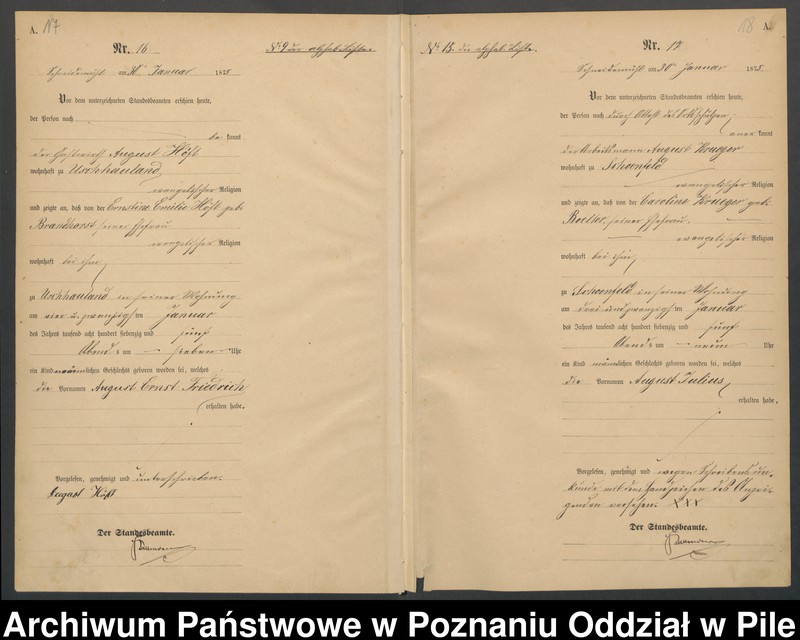 A. 17
Nr. 16
No 9 der alphab. Liste.
Schneidemühl am 30 Januar 1875
Vor dem unterzeichneten Standesbeamten erschien heute,
der Person nach
be kannt
der Gastwirth August Höft
wohnhaft zu Uschhauland,
evangelischer Religion
und zeigte an, daß von der Ernstine Emilie Höft geb.
Brandhorst seiner Ehefrau
evangelischer Religion
wohnhaft bei ihm,
zu Uschhauland in seiner Wohnung
am vier u. zwanzigsten Januar
des Jahres tausend acht hundert siebenzig und fünf
Abends um sieben Uhr
ein Kind männlichen Geschlechts geboren worden sei, welches
die Vornamen August Ernst Friedrich
erhalten habe.
Vorgelesen, genehmigt und unterschrieben.
August Höft
Der Standesbeamte.
18 A.
No 13. die alphab. Liste.
Nr. 17
Schneidemühl am 30 Januar 1875.
Vor dem unterzeichneten Standesbeamten erschien heute,
der Person nach durch Attest des Ortsschulzen,
aner kannt
der Arbeitsmann August Krueger
wohnhaft zu Schoenfeld
evangelischer Religion
und zeigte an, daß von der Caroline Krueger geb.
seiner Ehefrau
evangelischer Religion
wohnhaft bei ihm,
zu Schoenfeld in seiner Wohnung
am drei und zwanzigsten Januar
des Jahres tausend acht hundert siebenzig und fünf
Abends um neun Uhr
ein Kind männlichen Geschlechts geboren worden sei, welches
die Vornamen August Julius,
erhalten habe.
Vorgelesen, genehmigt und wegen Schreibensun-
kunde mit dem Handzeichen des Anzei-
genden versehen. XXX
Der Standesbeamte.
Archiwum Państwowe w Poznaniu Oddział w Pile